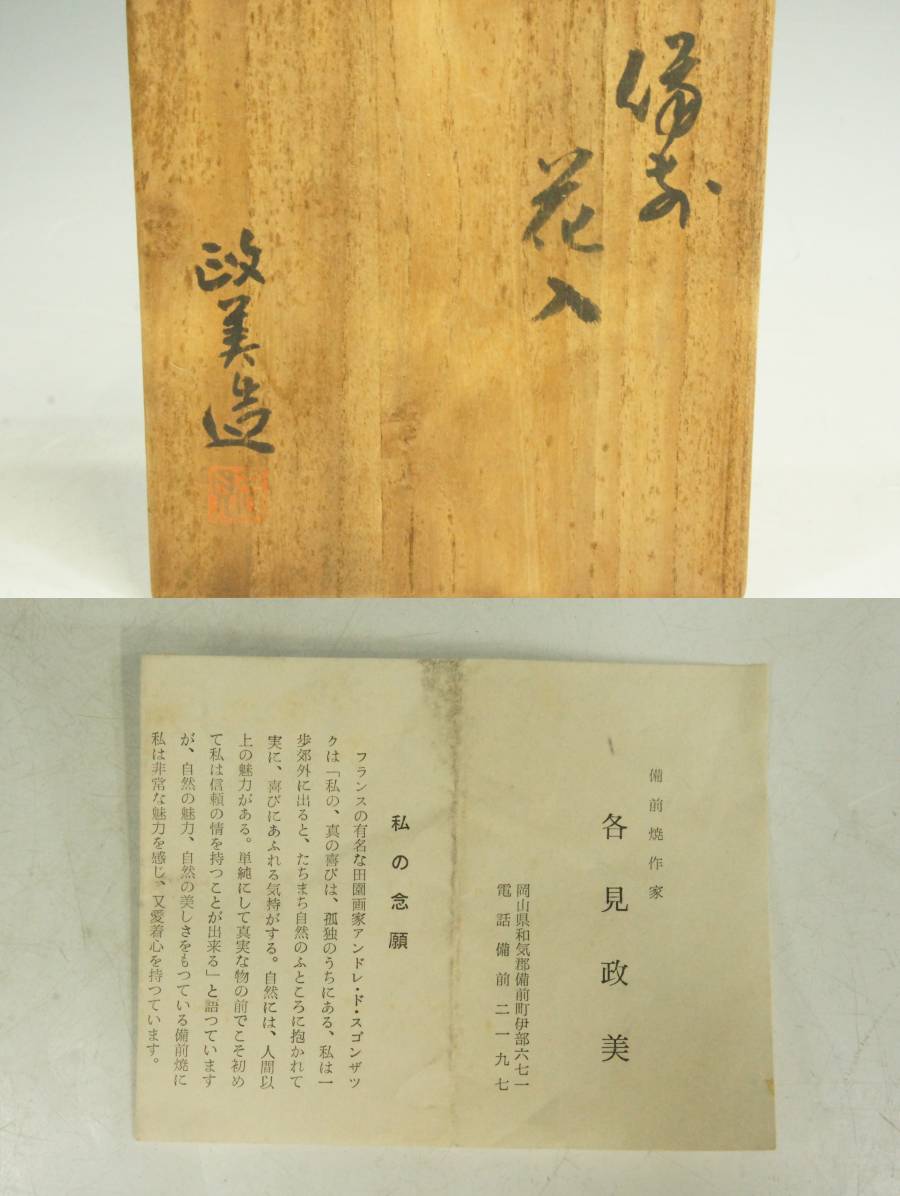 備前
花入
政美造
備前焼作家
各見政美
岡山県和気郡備前町伊部六七一
電話備前二一九七
私の念願
フランスの有名な田園画家アンドレ・ド・スゴンザツ
クは「私の、真の喜びは、孤独のうちにある、私は一
歩郊外に出ると、たちまち自然のふところに抱かれて
実に、喜びにあふれる気持がする。自然には、人間以
上の魅力がある。単純にして真実な物の前でこそ初め
て私は信頼の情を持つことが出来る」と語つています
が、自然の魅力、自然の美しさをもつている備前焼に
私は非常な魅力を感じ、又愛着心を持つています。